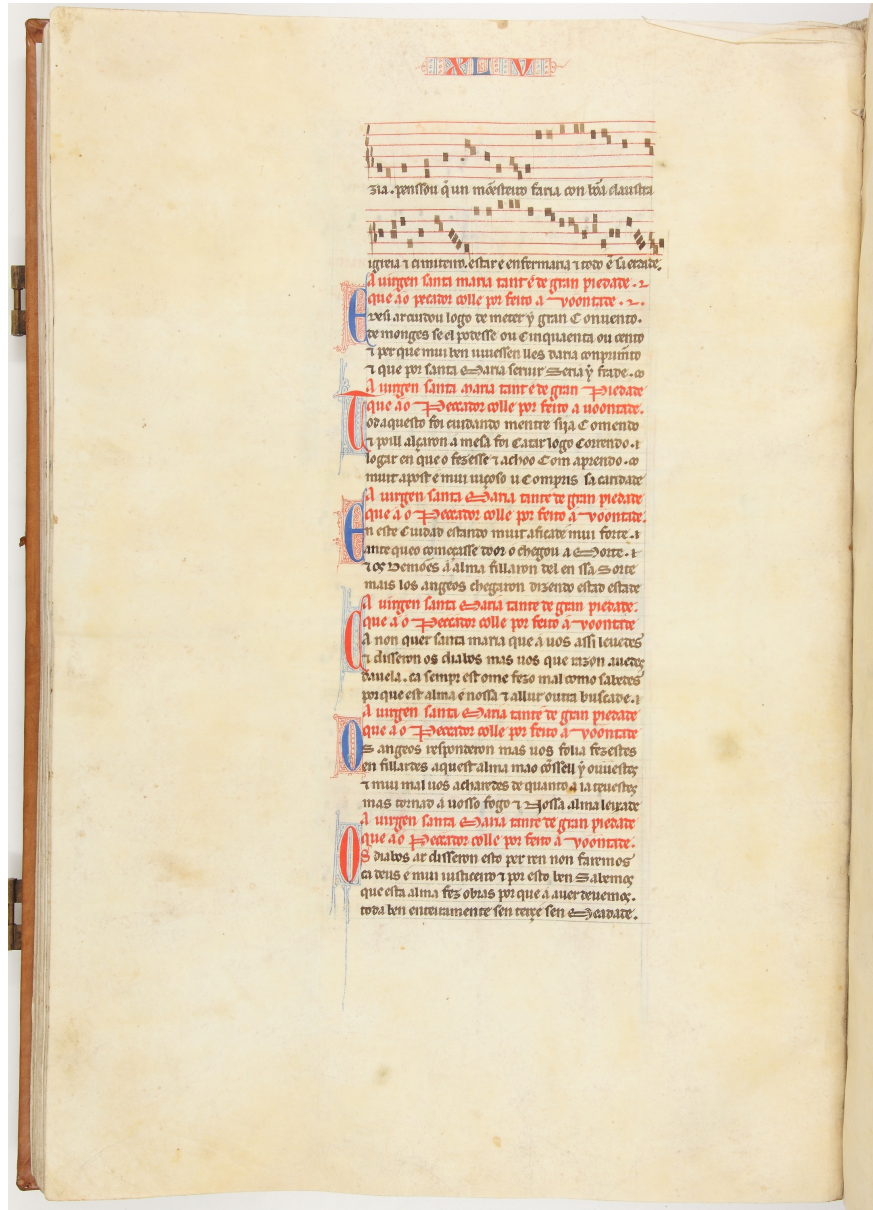 XL V
zia. penssou q̃ un mõesteiro faria con bõa claustra
igreia ⁊ cimiteiro. estar e enfermaria ⁊ todo ẽ sa eidade.
A uirgen santa maria tant é de gran piedade . ⁊
que ao pecador colle por feito a uoontade . ⁊ .
E desi ar cuidou logo de meter ẏ gran Conuento.
de monges se el podesse ou Cinquaenta ou cento
⁊ per que mui ben uiuessen lles daria conprimẽto
⁊ que por santa Maria seruir Seria ẏ frade .
A uirgen santa Maria tant é de gran Piedade
que ao Peccador colle por feito a uoontade.
Todaquesto foi cuidando mentre siia Comendo
⁊ poill alçaron a mesa foi Catar logo Correndo .
logar en que o fezesse ⁊ achoo Com aprendo .
muit apost e mui uiçoso u Compris sa caridade
A uirgen santa Maria tant e de gran piedade
que á o Peccador colle por feito á uoontade.
En este Cuidad estando muit aficade mui forte .
ante queo começasse door o chegou a Morte .
⁊ os Demões á alma fillaron del en ssa Sorte
mais los angeos chegaron dizendo estad estade
A uirgen santa Maria tant e de gran piedade.
que á o Peccador colle por feito á uoontade
Ca non quer santa maria que á uos assi leuedes
⁊ disseron os diabos mas uos que razon auedes
dauela . ca sempr est ome fezo mal como sabedes
por que est alma é nossa ⁊ allur outra buscade .
A uirgen santa Maria tant e de gran piedade
que á o Peccador colle por feito á uoontade
Os angeos responderon mas uos folia fezestes
en fillardes aquest alma mao cõssell ẏ ouuestes
⁊ mui mal uos acharedes de quanto a ia teuestes
mas tornad á uosso fogo ⁊ Nossa alma leixade
A uirgen santa Maria tant e de gran piedade
que áo Peccador colle por feito á uoontade.
Os diabos ar disseron esto per ren non faremos
ca deus e mui iusticeiro ⁊ por esto ben Sabemos
que esta alma fez obras por que á auer deuemos.
toda ben enteiramente sen terçe sen Meadade.